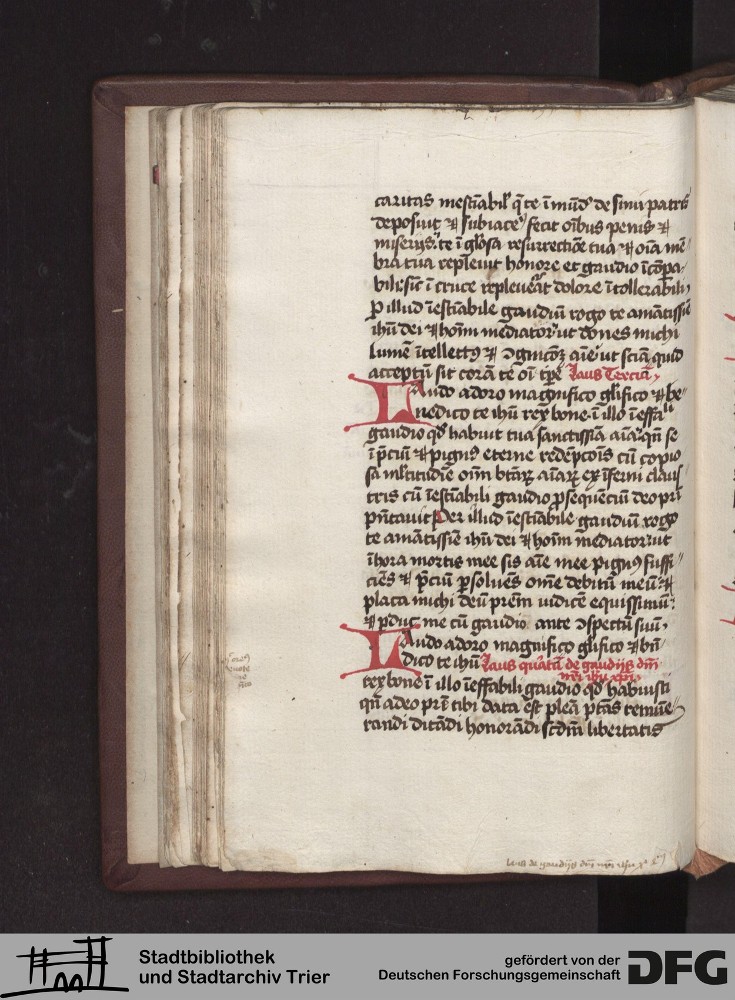 caritas inestiābil' q̄ te ī mūd' de sinu patris
deposuit ⁊ subiacē fecit oībus penis ⁊
miserijs: te ī gl'osa resurrectiōe tua ⁊ oīa mē
bra tua repleuit honore et gaudio īcōpa-
bili: sic̄ ī cruce repleuerāt dolore ītollerabili,
P illud īestiābile gaudiū rogo te amātissie
ihū dei ⁊ hoīm mediator ut dones michi
lumē ītellectꝰ ⁊ ꝯgnicōꝫ aīe ut sciā quid
acceptū sit corā te oī tpe Laus Tercia,
Laudo adoro magnifico gl'ifico ⁊ be-
nedico te ihū rex bone: ī illo īeffali
gaudio qd habuit tua sanctissiā aīa: qn̄ se
ī p̄ciū ⁊ pignꝰ eterne redēpcoīs cū copio
sa m̄ltitudīe oīm btārꝫ aīarꝫ ex īferni claus
tris cū īestiābili gaudio ꝓsequēciū deo pri
pn̄tauit Per illud īestiābile gaudiū rogo
te amātissie ihū dei ⁊ hoīm mediator: ut
ī hora mortis mee sis aīe mee pignꝰ suffi-
ciēs ⁊ p̄ciū ꝑsoluēs om̄e debitū meū: ⁊
placa michi deū prēm iudicē equissimū:
⁊ ꝑduc me cū gaudio ante ꝯspectū suū,
Laudo adoro magnifico gl'ifico ⁊ bn̄
dico te ihū Laus quarta de gaudijs dn̄i
nr̄i ihū xpi,
rex bone ī illo īeffabili gaudio qd habuisti
qn̄ a deo prē tibi data est plea ptās remūe
randi ditādi honorādi scdm̄ libertatis
Laus de gaudijs dn̄i nr̄i ihū x
Stadtbibliothek
und Stadtarchiv Trier
gefördert von der
Deutschen Forschungsgemeinschaft
DFG